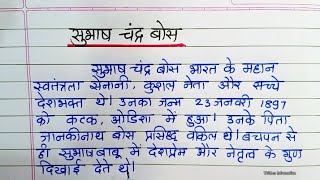 सुभाष चंद्र बोस
सुभाष चंद्र बोस भारत के महान
स्वतंत्रता सेनानी, कुशल नेता और सच्चे
देशभक्त थे। उनका जन्म 23 जनवरी 1897
को कटक, ओडिशा में हुआ। उनके पिता
जानकीनाथ बोस प्रसिद्ध वकिल थे। बचपन से
ही सुभाष बाबू में देशप्रेम और नेतृत्व के गुण
दिखाई देते थे।